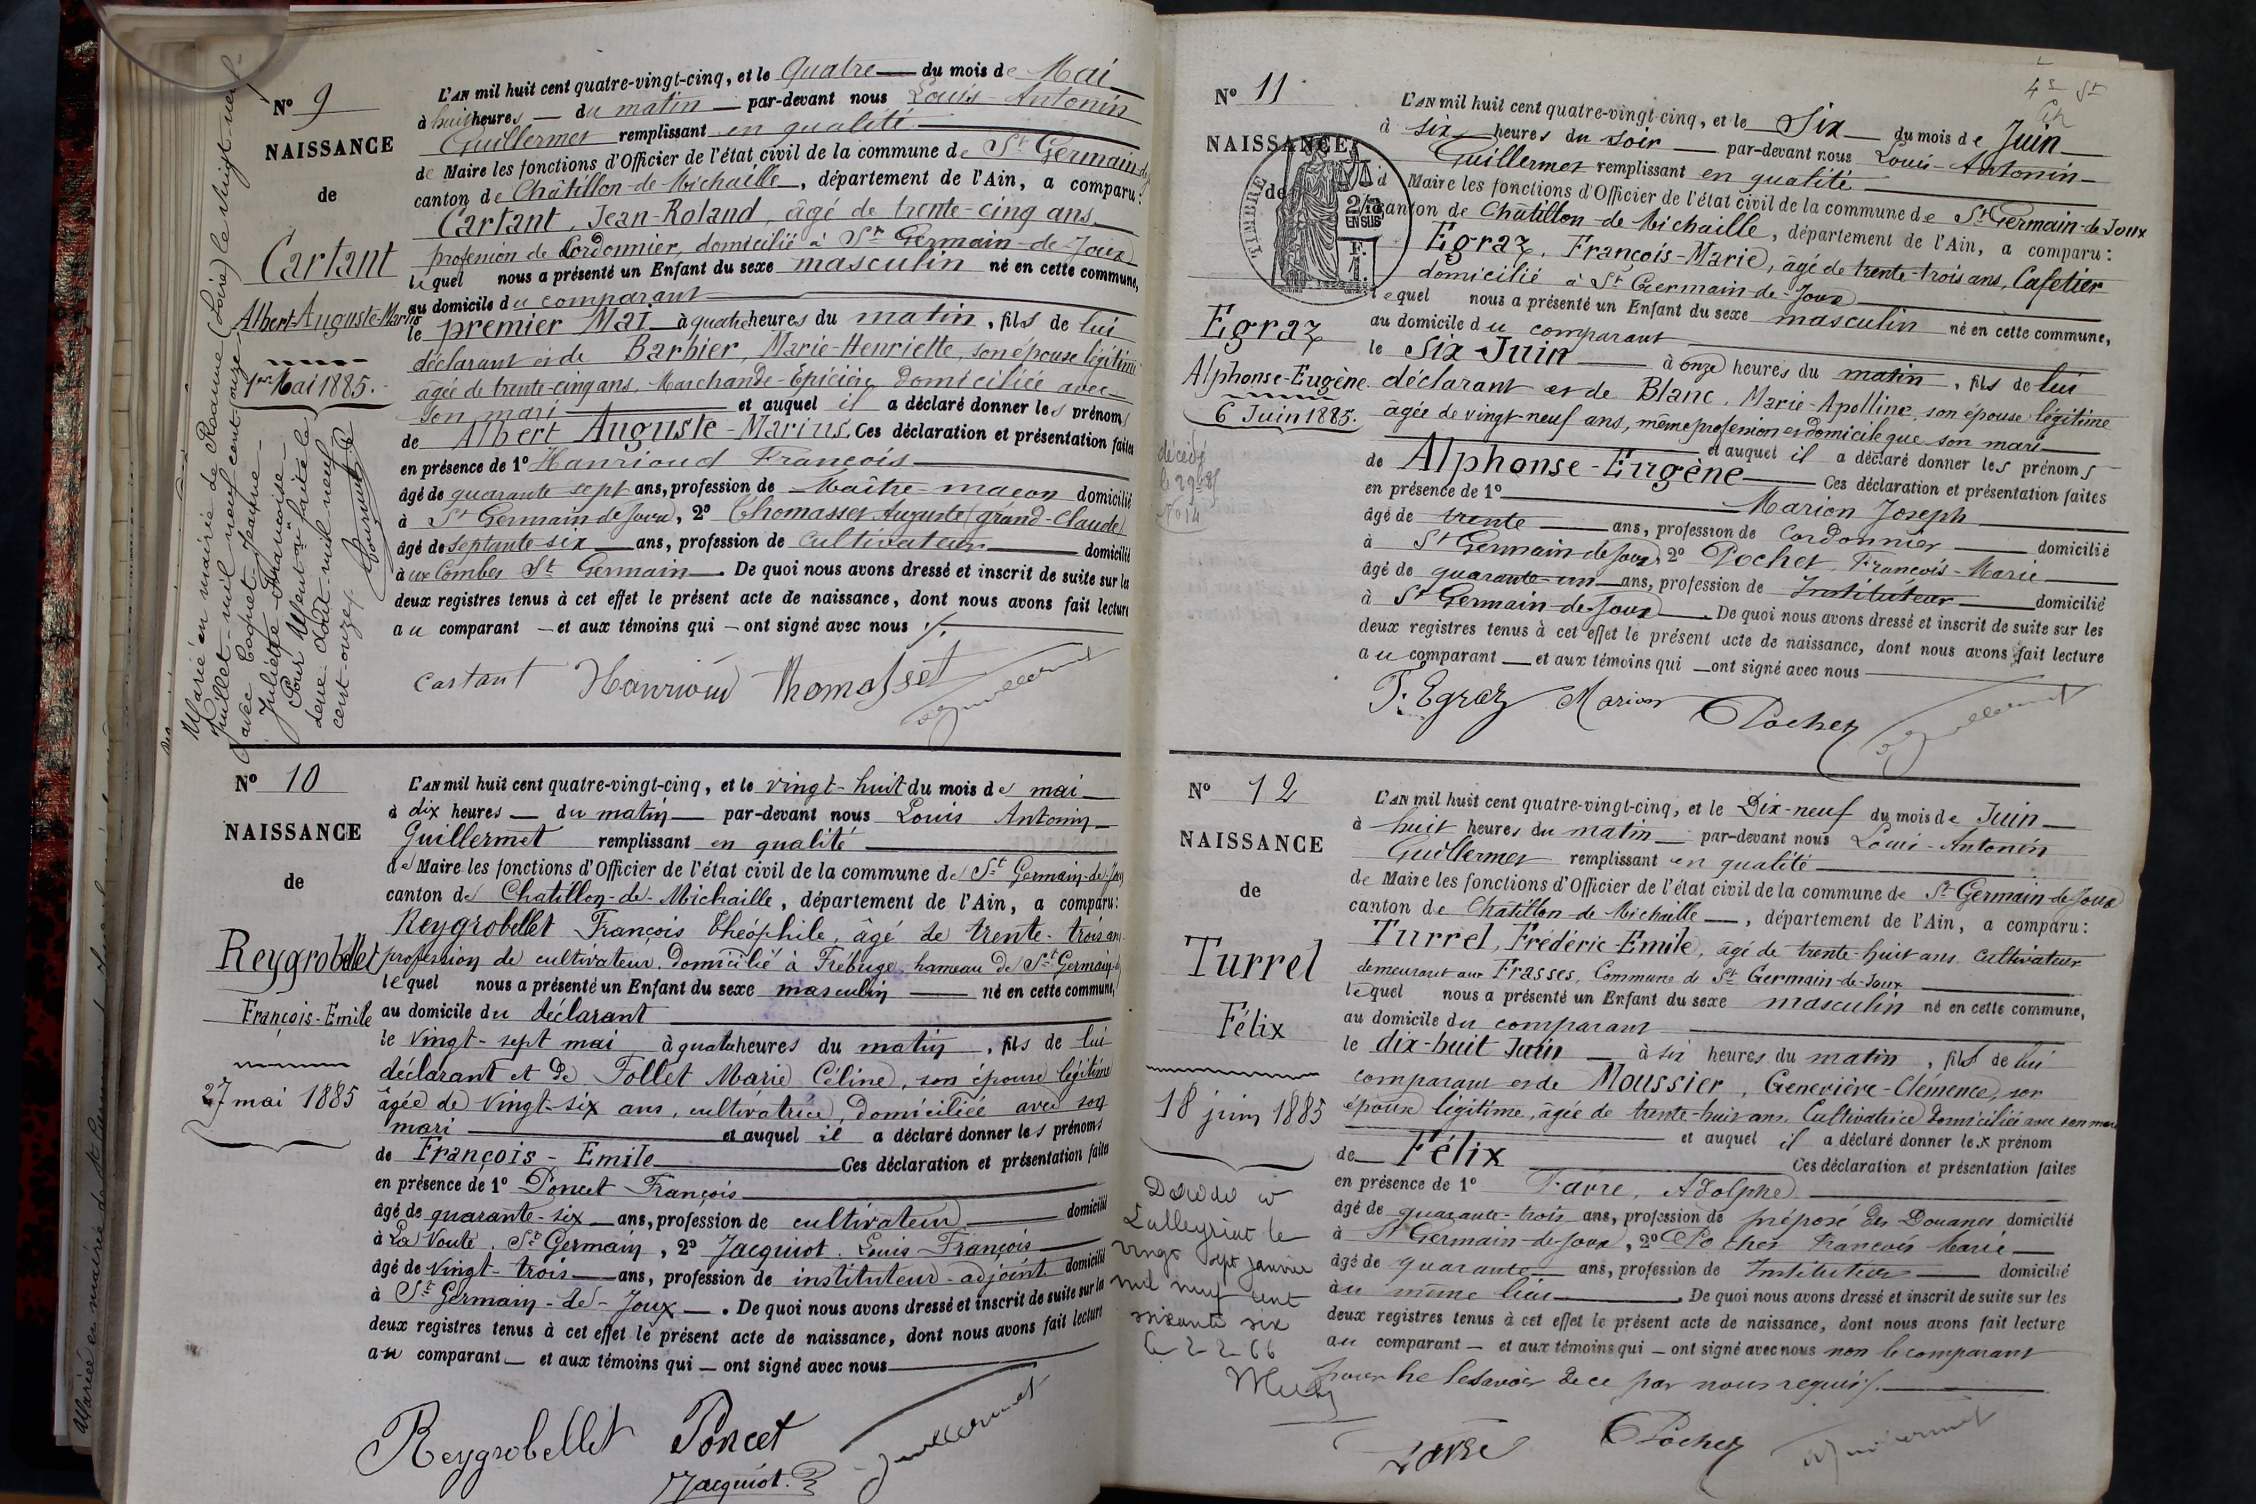 Nº 9
NAISSANCE
de
Cartant
Albert-Auguste-Marius
1er Mai 1885.
Marié en mairie de Roanne (Loire) le vingt-neuf
Juillet mil neuf cent onze
avec Coquet Jeanne
Juliette Françoise
Pour Mention faite le
deux Août mil neuf
cent onze.
L'AN mil huit cent quatre-vingt-cinq, et le Quatre du mois de Mai
à huit heures du matin par-devant nous Louis Antonin
Guillermet remplissant en qualité
de Maire les fonctions d'Officier de l'état civil de la commune de St Germain-de-J
canton de Châtillon-de-Michaille, département de l'Ain, a comparu:
Cartant, Jean-Roland, âgé de trente-cinq ans
profession de Cordonnier, domicilié à St Germain-de-Joux
lequel nous a présenté un Enfant du sexe masculin né en cette commune,
au domicile du comparant
le premier Mai à quatre heures du matin, fils de lui
déclarant et de Barbier, Marie-Henriette, son épouse légitime
âgée de trente-cinq ans, Marchande-Epicière domiciliée avec
son mari et auquel il a déclaré donner les prénoms
de Albert Auguste-Marius. Ces déclaration et présentation faites
en présence de 1º Hanrioud François
âgé de quarante sept ans, profession de Maître-maçon domicilié
à St Germain de Joux, 2º Thomasset Auguste (grand-Claude)
âgé de septante six ans, profession de cultivateur domicilié
à ux Combes St Germain. De quoi nous avons dressé et inscrit de suite sur les
deux registres tenus à cet effet le présent acte de naissance, dont nous avons fait lecture
au comparant et aux témoins qui ont signé avec nous ./.
Cartant Hanrioud Thomasset
Guillermet
Nº 10
NAISSANCE
de
Reygrobellet
François-Emile
27 mai 1885
L'AN mil huit cent quatre-vingt-cinq, et le vingt-huit du mois de mai
à dix heures du matin par-devant nous Louis Antonin
Guillermet remplissant en qualité
de Maire les fonctions d'Officier de l'état civil de la commune de St Germain-de-Joux
canton de Chatillon-de-Michaille, département de l'Ain, a comparu:
Reygrobellet François Théophile, âgé de trente-trois ans
profession de cultivateur, domicilié à Trébuge, hameau de St Germain
lequel nous a présenté un Enfant du sexe masculin né en cette commune,
au domicile du déclarant
le vingt-sept mai à quatre heures du matin, fils de lui
déclarant et de Follet Marie Céline, son épouse légitime
âgée de vingt-six ans, cultivatrice, domiciliée avec son
mari et auquel il a déclaré donner les prénoms
de François-Emile Ces déclaration et présentation faites
en présence de 1º Poncet François
âgé de quarante-six ans, profession de cultivateur domicilié
à La Voute, St Germain, 2º Jacquiot Louis François
âgé de vingt-trois ans, profession de instituteur-adjoint domicilié
à St Germain-de-Joux. De quoi nous avons dressé et inscrit de suite sur la
deux registres tenus à cet effet le présent acte de naissance, dont nous avons fait lecture
au comparant et aux témoins qui ont signé avec nous
Reygrobellet Poncet
Jacquiot
Guillermet
Nº 11
NAISSANCE
de
TIMBRE
2/10
EN SUS
Egraz
Alphonse-Eugène
6 Juin 1885.
décédé
Nº 14
L'AN mil huit cent quatre-vingt-cinq, et le Six du mois de Juin
à six heures du soir par-devant nous Louis-Antonin
Guillermet remplissant en qualité
d Maire les fonctions d'Officier de l'état civil de la commune de St Germain-de-Joux
canton de Châtillon-de-Michaille, département de l'Ain, a comparu:
Egraz, François-Marie, âgé de trente-trois ans, Cafetier
domicilié à St Germain-de-Joux
lequel nous a présenté un Enfant du sexe masculin né en cette commune,
au domicile du comparant
le Six Juin à onze heures du matin, fils de lui
déclarant et de Blanc, Marie-Apolline, son épouse légitime
âgée de vingt-neuf ans, même profession et domicile que son mari
et auquel il a déclaré donner les prénoms
de Alphonse-Eugène Ces déclaration et présentation faites
en présence de 1º Marion Joseph
âgé de trente ans, profession de Cordonnier domicilié
à St Germain-de-Joux, 2º Pochet, François-Marie
âgé de quarante-un ans, profession de Instituteur domicilié
à St Germain-de-Joux. De quoi nous avons dressé et inscrit de suite sur les
deux registres tenus à cet effet le présent acte de naissance, dont nous avons fait lecture
au comparant et aux témoins qui ont signé avec nous
F. Egraz Marion Pochet
Guillermet
Nº 12
NAISSANCE
de
Turrel
Félix
18 juin 1885
Décédé à
Lalleyriat le
vingt sept janvier
mil neuf cent
soixante six
le 2-2-66
L'AN mil huit cent quatre-vingt-cinq, et le Dix-neuf du mois de Juin
à huit heures du matin par-devant nous Louis-Antonin
Guillermet remplissant en qualité
de Maire les fonctions d'Officier de l'état civil de la commune de St Germain-de-Joux
canton de Châtillon-de-Michaille, département de l'Ain, a comparu:
Turrel, Frédéric-Emile, âgé de trente-huit ans cultivateur
demeurant aux Frasses, Commune de St Germain-de-Joux
lequel nous a présenté un Enfant du sexe masculin né en cette commune,
au domicile du comparant
le dix-huit Juin à six heures du matin, fils de lui
comparant et de Moussier, Geneviève-Clémence, son
épouse légitime, âgée de trente-huit ans, Cultivatrice domiciliée avec son mari
et auquel il a déclaré donner le x prénom
de Félix Ces déclaration et présentation faites
en présence de 1º Favre, Adolphe
âgé de quarante-trois ans, profession de préposé des Douanes domicilié
à St Germain-de-Joux, 2º Pochet François Marie
âgé de quarante ans, profession de Instituteur domicilié
au même lieu. De quoi nous avons dressé et inscrit de suite sur les
deux registres tenus à cet effet le présent acte de naissance, dont nous avons fait lecture
au comparant et aux témoins qui ont signé avec nous non le comparant
pour ne le savoir de ce par nous requis ./.
Favre Pochet Guillermet